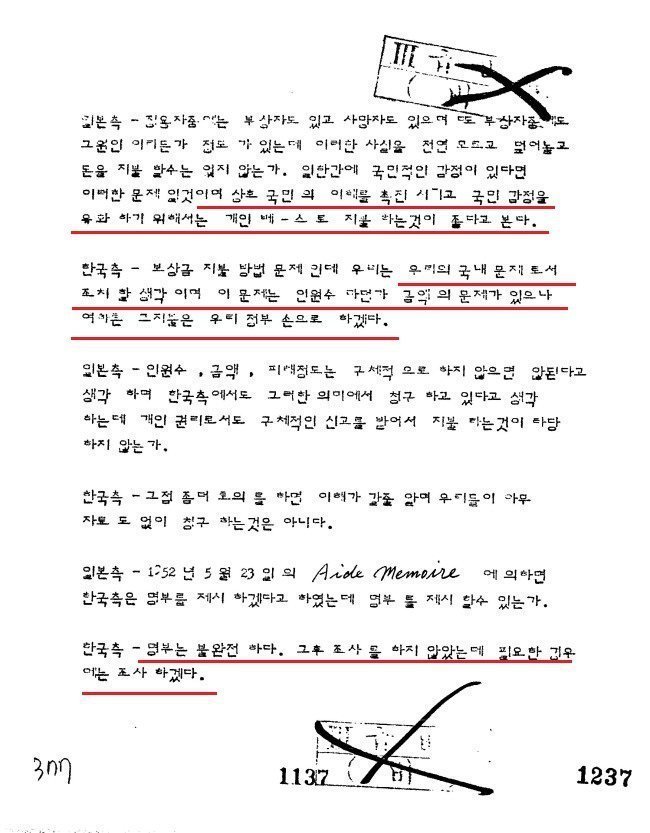 III 급
일본측 - 징용자중에는 부상자도 있고 사망자도 있으며 또 부상자중에도
그원인 이라든가 정도 가 있는데 이러한 사실을 전연 모르고 덮어놓고
돈을 지불 할수는 없지 않는가. 일한간에 국민적인 감정이 있다면
이러한 문제 일것이며 상호 국민 의 이해를 촉진 시키고 국민 감정을
유화 하기 위해서는 개인 베-스 로 지불 하는것이 좋다고 본다.
한국측 - 보상금 지불 방법 문제 인데 우리는 우리의 국내 문제 로서
조처 할 생각 이며 이 문제는 인원수 라던가 금액 의 문제가 있으나
여하튼 그지불은 우리 정부 손으로 하겠다.
일본측 - 인원수 , 금액 , 피해정도는 구체적 으로 하지 않으면 않된다고
생각 하며 한국측에서도 그러한 의미에서 청구 하고 있다고 생각
하는데 개인 권리로서도 구체적인 신고를 받어서 지불 하는것이 타당
하지 않는가.
한국측 - 그점 좀더 토의 를 하면 이해가 갈줄 알며 우리들이 아무
자료 도 없이 청구 하는것은 아니다.
일본측 - 1952 년 5 월 23 일 의 Aide Memoire 에 의하면
한국측은 명부를 제시 하겠다고 하였는데 명부 를 제시 할수 있는가.
한국측 - 명부는 불완전 하다. 그후 조사 를 하지 않았는데 필요한 경우
에는 조사 하겠다.
III 급 비
307
1137
1237